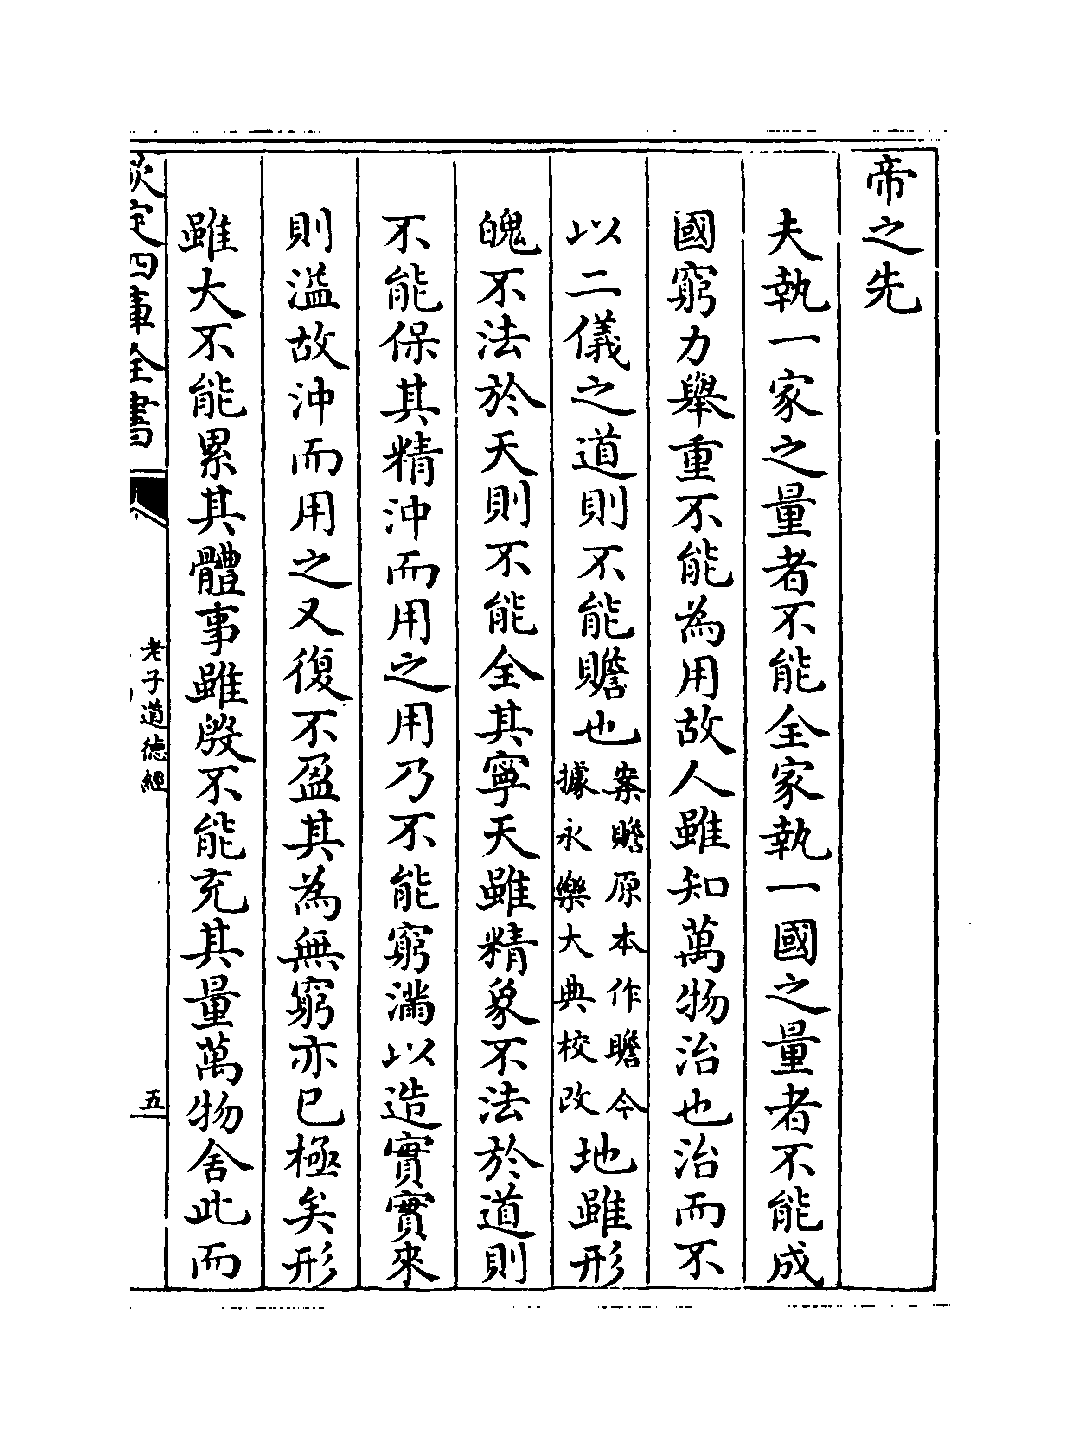 帝之先
夫執一家之量者不能全家執一國之量者不能成
國窮力舉重不能為用故人雖知萬物治也治而不
以二儀之道則不能贍也案贍原本作瞻今據永樂大典校改地雖形
魄不法於天則不能全其寧天雖精象不法於道則
不能保其精沖而用之用乃不能窮滿以造實實來
則溢故沖而用之又復不盈其為無窮亦已極矣形
雖大不能累其體事雖殷不能充其量萬物舍此而
欽定四庫全書
老子道德經
五